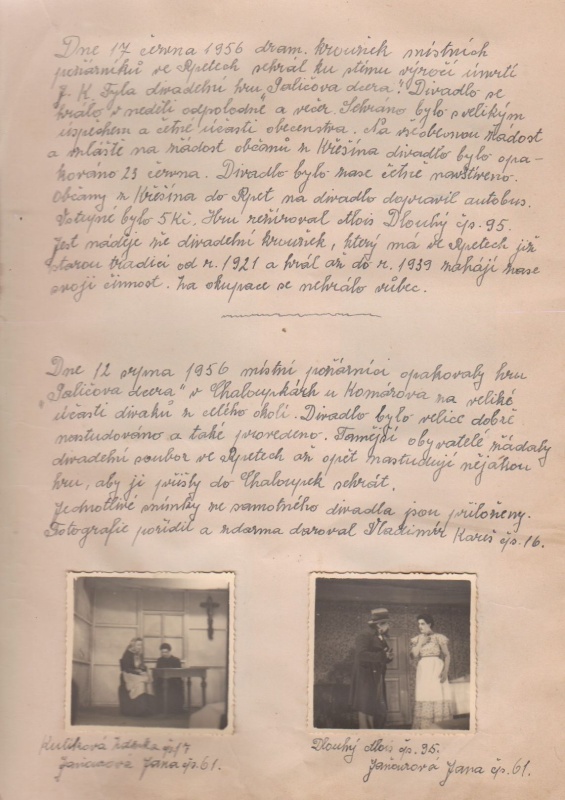 Dne 17 června 1956 dram. kroužek místních
požárníků ve Rpetech sehrál ku stému výročí úmrtí
J. K. Tyla divadelní hru „Paličova dcera". Divadlo se
hrálo v neděli odpoledne a večer. Sehráno bylo s velikým
úspěchem a četné účasti obecenstva. Na všeobecnou žádost
a zvláště na žádost občanů z Křešína divadlo bylo opa-
kováno 23 června. Divadlo bylo zase četně navštíveno.
Občany z Křešína do Rpet na divadlo dopravil autobus.
Vstupné bylo 5 Kč. Hru režíroval Alois Dlouhý čp. 95.
Jest naděje že divadelní kroužek, který má ve Rpetech již
starou tradici od r. 1921 a hrál až do r. 1939 zahájí zase
svoji činnost. Za okupace se nehrálo vůbec.
Dne 12 srpna 1956 místní požárníci opakovaly hru
„Paličova dcera" v Chaloupkách u Komárova na veliké
účasti diváků z celého okolí. Divadlo bylo velice dobře
nastudováno a také provedeno. Tamější obyvatelé žádaly
divadelní soubor ve Rpetech až opět nastudují nějakou
hru, aby ji přišly do Chaloupek sehrát.
Jednotlivé snímky ze samotného divadla jsou přiloženy.
Fotografie pořídil a zdarma daroval Vladimír Kareš čp. 16.
Kutíková Zdenka čp 17
Jančarová Jana čp 61.
Dlouhý Alois čp. 95.
Jančarová Jana čp. 61.